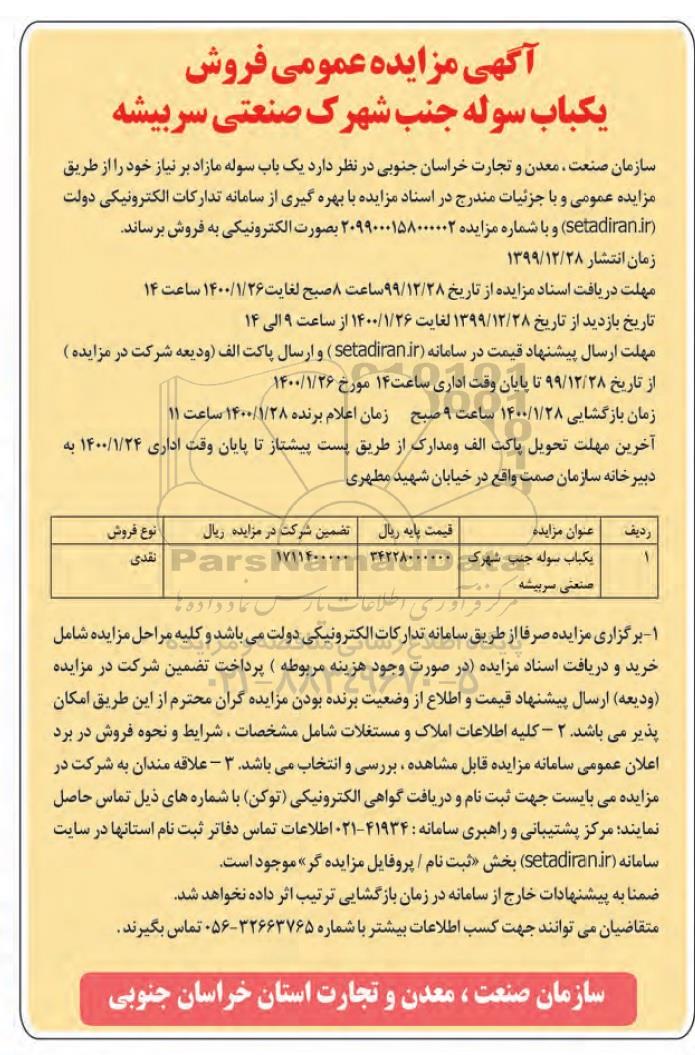 آگهی مزایده عمومی فروش
یکباب سوله جنب شهرک صنعتی سربیشه
سازمان صنعت ، معدن و تجارت خراسان جنوبی در نظر دارد یک باب سوله مازاد بر نیاز خود را از طریق
مزایده عمومی و با جزئیات مندرج در اسناد مزایده با بهره گیری از سامانه تدارکات الکترونیکی دولت
(setadiran.ir) و با شماره مزایده ۲۰۹۹۰۰۰۱۵۸۰۰۰۰۰۲ بصورت الکترونیکی به فروش برساند.
زمان انتشار ۱۳۹۹/۱۲/۲۸
مهلت دریافت اسناد مزایده از تاریخ ۹۹/۱۲/۲۸ساعت ۸صبح لغایت۱۴۰۰/۱/۲۶ ساعت ۱۴
تاریخ بازدید از تاریخ ۱۳۹۹/۱۲/۲۸ لغایت ۱۴۰۰/۱/۲۶ از ساعت ۹ الی ۱۴
مهلت ارسال پیشنهاد قیمت در سامانه (setadiran.ir ) و ارسال پاکت الف (ودیعه شرکت در مزایده )
از تاریخ ۹۹/۱۲/۲۸ تا پایان وقت اداری ساعت۱۴ مورخ ۱۴۰۰/۱/۲۶
زمان بازگشایی ۱۴۰۰/۱/۲۸ ساعت ۹ صبح زمان اعلام برنده ۱۴۰۰/۱/۲۸ ساعت ۱۱
آخرین مهلت تحویل پاکت الف ومدارک از طریق پست پیشتاز تا پایان وقت اداری ۱۴۰۰/۱/۲۴ به
دبیرخانه سازمان صمت واقع در خیابان شهید مطهری
ردیف عنوان مزایده قیمت پایه ریال تضمین شرکت در مزایده ریال نوع فروش
۱ یکباب سوله جنب شهرک ۳۴۲۲۸۰۰۰۰۰۰ ۱۷۱۱۴۰۰۰۰۰ نقدی
صنعتی سربیشه
ParsNamadData
مرکز فرآوری اطلاعات پارس نماد داده ها
پایگاه اطلاع رسانی مناقصه و مزایده
۰۲۱-۸۸۳۴۹۶۷۰-۵
۱-برگزاری مزایده صرفا از طریق سامانه تدارکات الکترونیکی دولت می باشد و کلیه مراحل مزایده شامل
خرید و دریافت اسناد مزایده (در صورت وجود هزینه مربوطه ) پرداخت تضمین شرکت در مزایده
(ودیعه) ارسال پیشنهاد قیمت و اطلاع از وضعیت برنده بودن مزایده گران محترم از این طریق امکان
پذیر می باشد. ۲ – کلیه اطلاعات املاک و مستغلات شامل مشخصات ، شرایط و نحوه فروش در برد
اعلان عمومی سامانه مزایده قابل مشاهده ، بررسی و انتخاب می باشد. ۳ – علاقه مندان به شرکت در
مزایده می بایست جهت ثبت نام و دریافت گواهی الکترونیکی (توکن) با شماره های ذیل تماس حاصل
نمایند؛ مرکز پشتیبانی و راهبری سامانه : ۴۱۹۳۴-۰۲۱ اطلاعات تماس دفاتر ثبت نام استانها در سایت
سامانه (setadiran.ir) بخش «ثبت نام / پروفایل مزایده گر» موجود است.
ضمنا به پیشنهادات خارج از سامانه در زمان بازگشایی ترتیب اثر داده نخواهد شد.
متقاضیان می توانند جهت کسب اطلاعات بیشتر با شماره ۳۲۶۶۳۷۶۵-۰۵۶ تماس بگیرند .
سازمان صنعت ، معدن و تجارت استان خراسان جنوبی